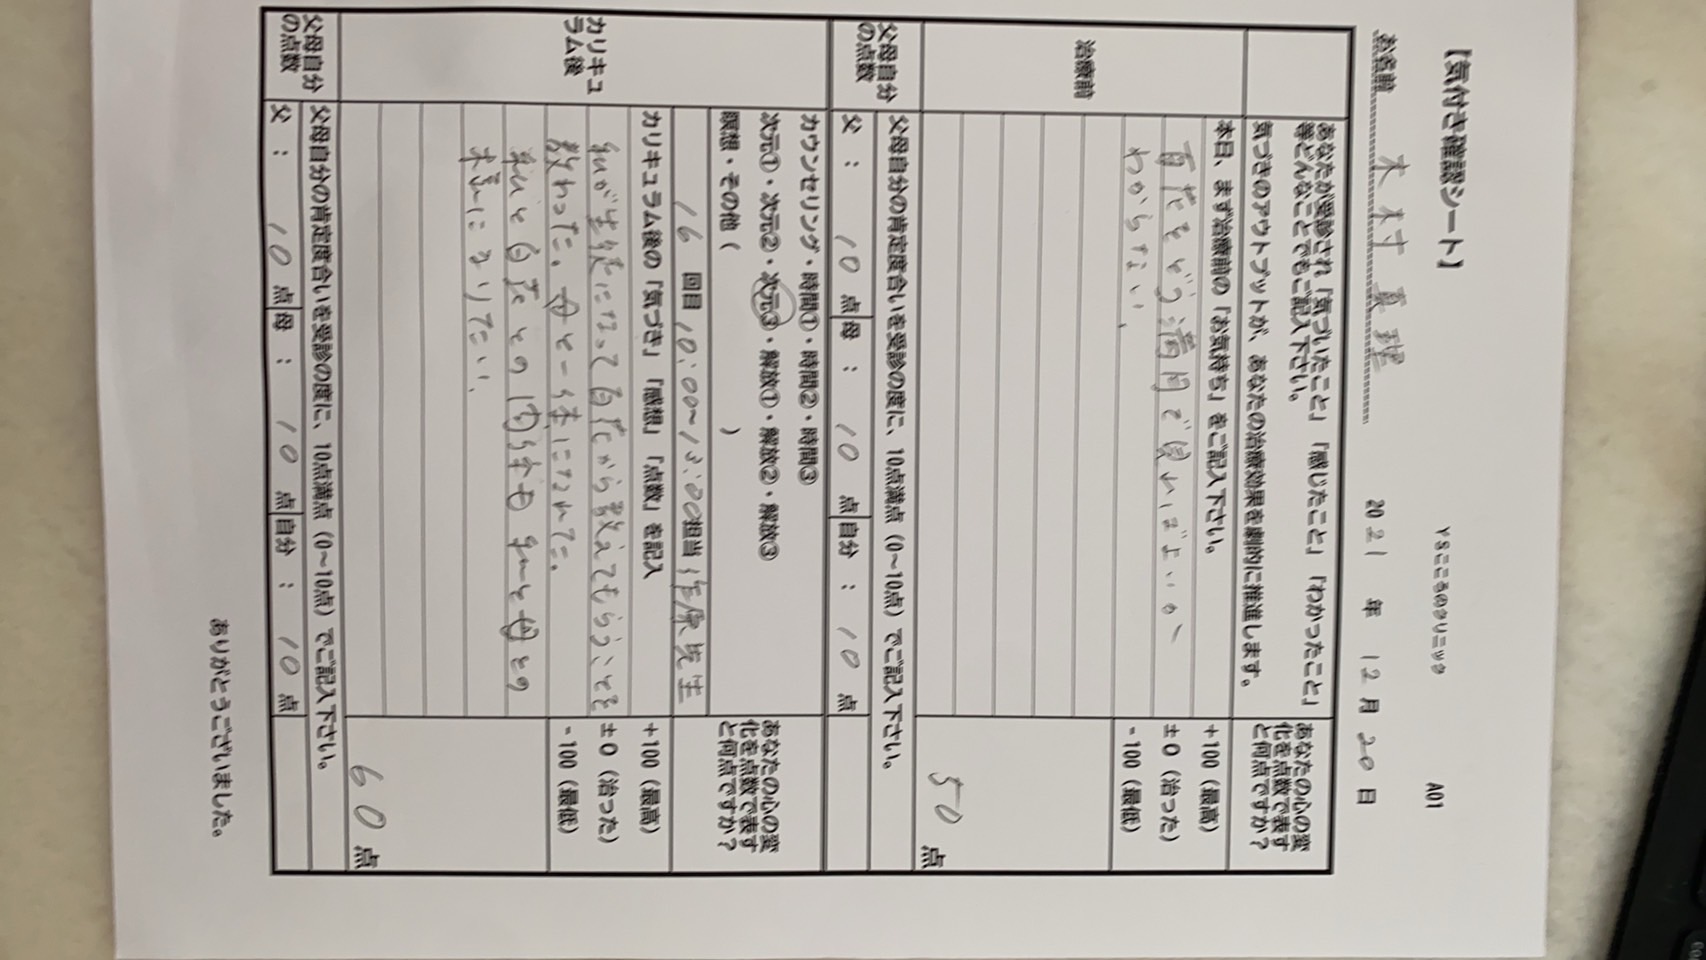 【気付き確認シート】
YSこころのクリニック
A01
お名前 木村 真理 2021 年 12 月 20 日
あなたが受診され「気づいたこと」「感じたこと」「わかったこと」
等どんなことでもご記入下さい。
気づきのアウトプットが、あなたの治療効果を劇的に推進します。
あなたの心の変
化を点数で表す
と何点ですか?
治療前
本日、まず治療前の「お気持ち」をご記入下さい。
百花をどう満月で
わからない。
+100(最高)
±0(治った)
-100(最低)
50 点
父母自分
の点数
父母自分の肯定度合いを受診の度に、10点満点(0~10点)でご記入下さい。
父: 10 点 母: 10 点 自分: 10 点
カリキュ
ラム後
カウンセリング・時間①・時間②・時間③
次元①・次元②・次元③・解放①・解放②・解放③
瞑想・その他( )
16 回目 10:00~13:00 担当 原先生
あなたの心の変
化を点数で表す
と何点ですか?
カリキュラム後の「気づき」「感想」「点数」を記入
私が生徒になって百花から教えてもらうことを
教わった。母と一体になれた。
私と百花との関係も私と母との
未来になりたい。
+100(最高)
±0(治った)
-100(最低)
60 点
父母自分
の点数
父母自分の肯定度合いを受診の度に、10点満点(0~10点)でご記入下さい。
父: 10 点 母: 10 点 自分: 10 点
ありがとうございました。